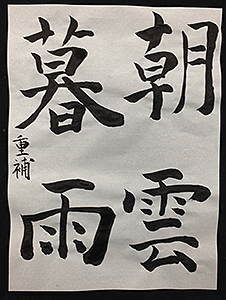 朝雲
暮雨
重補